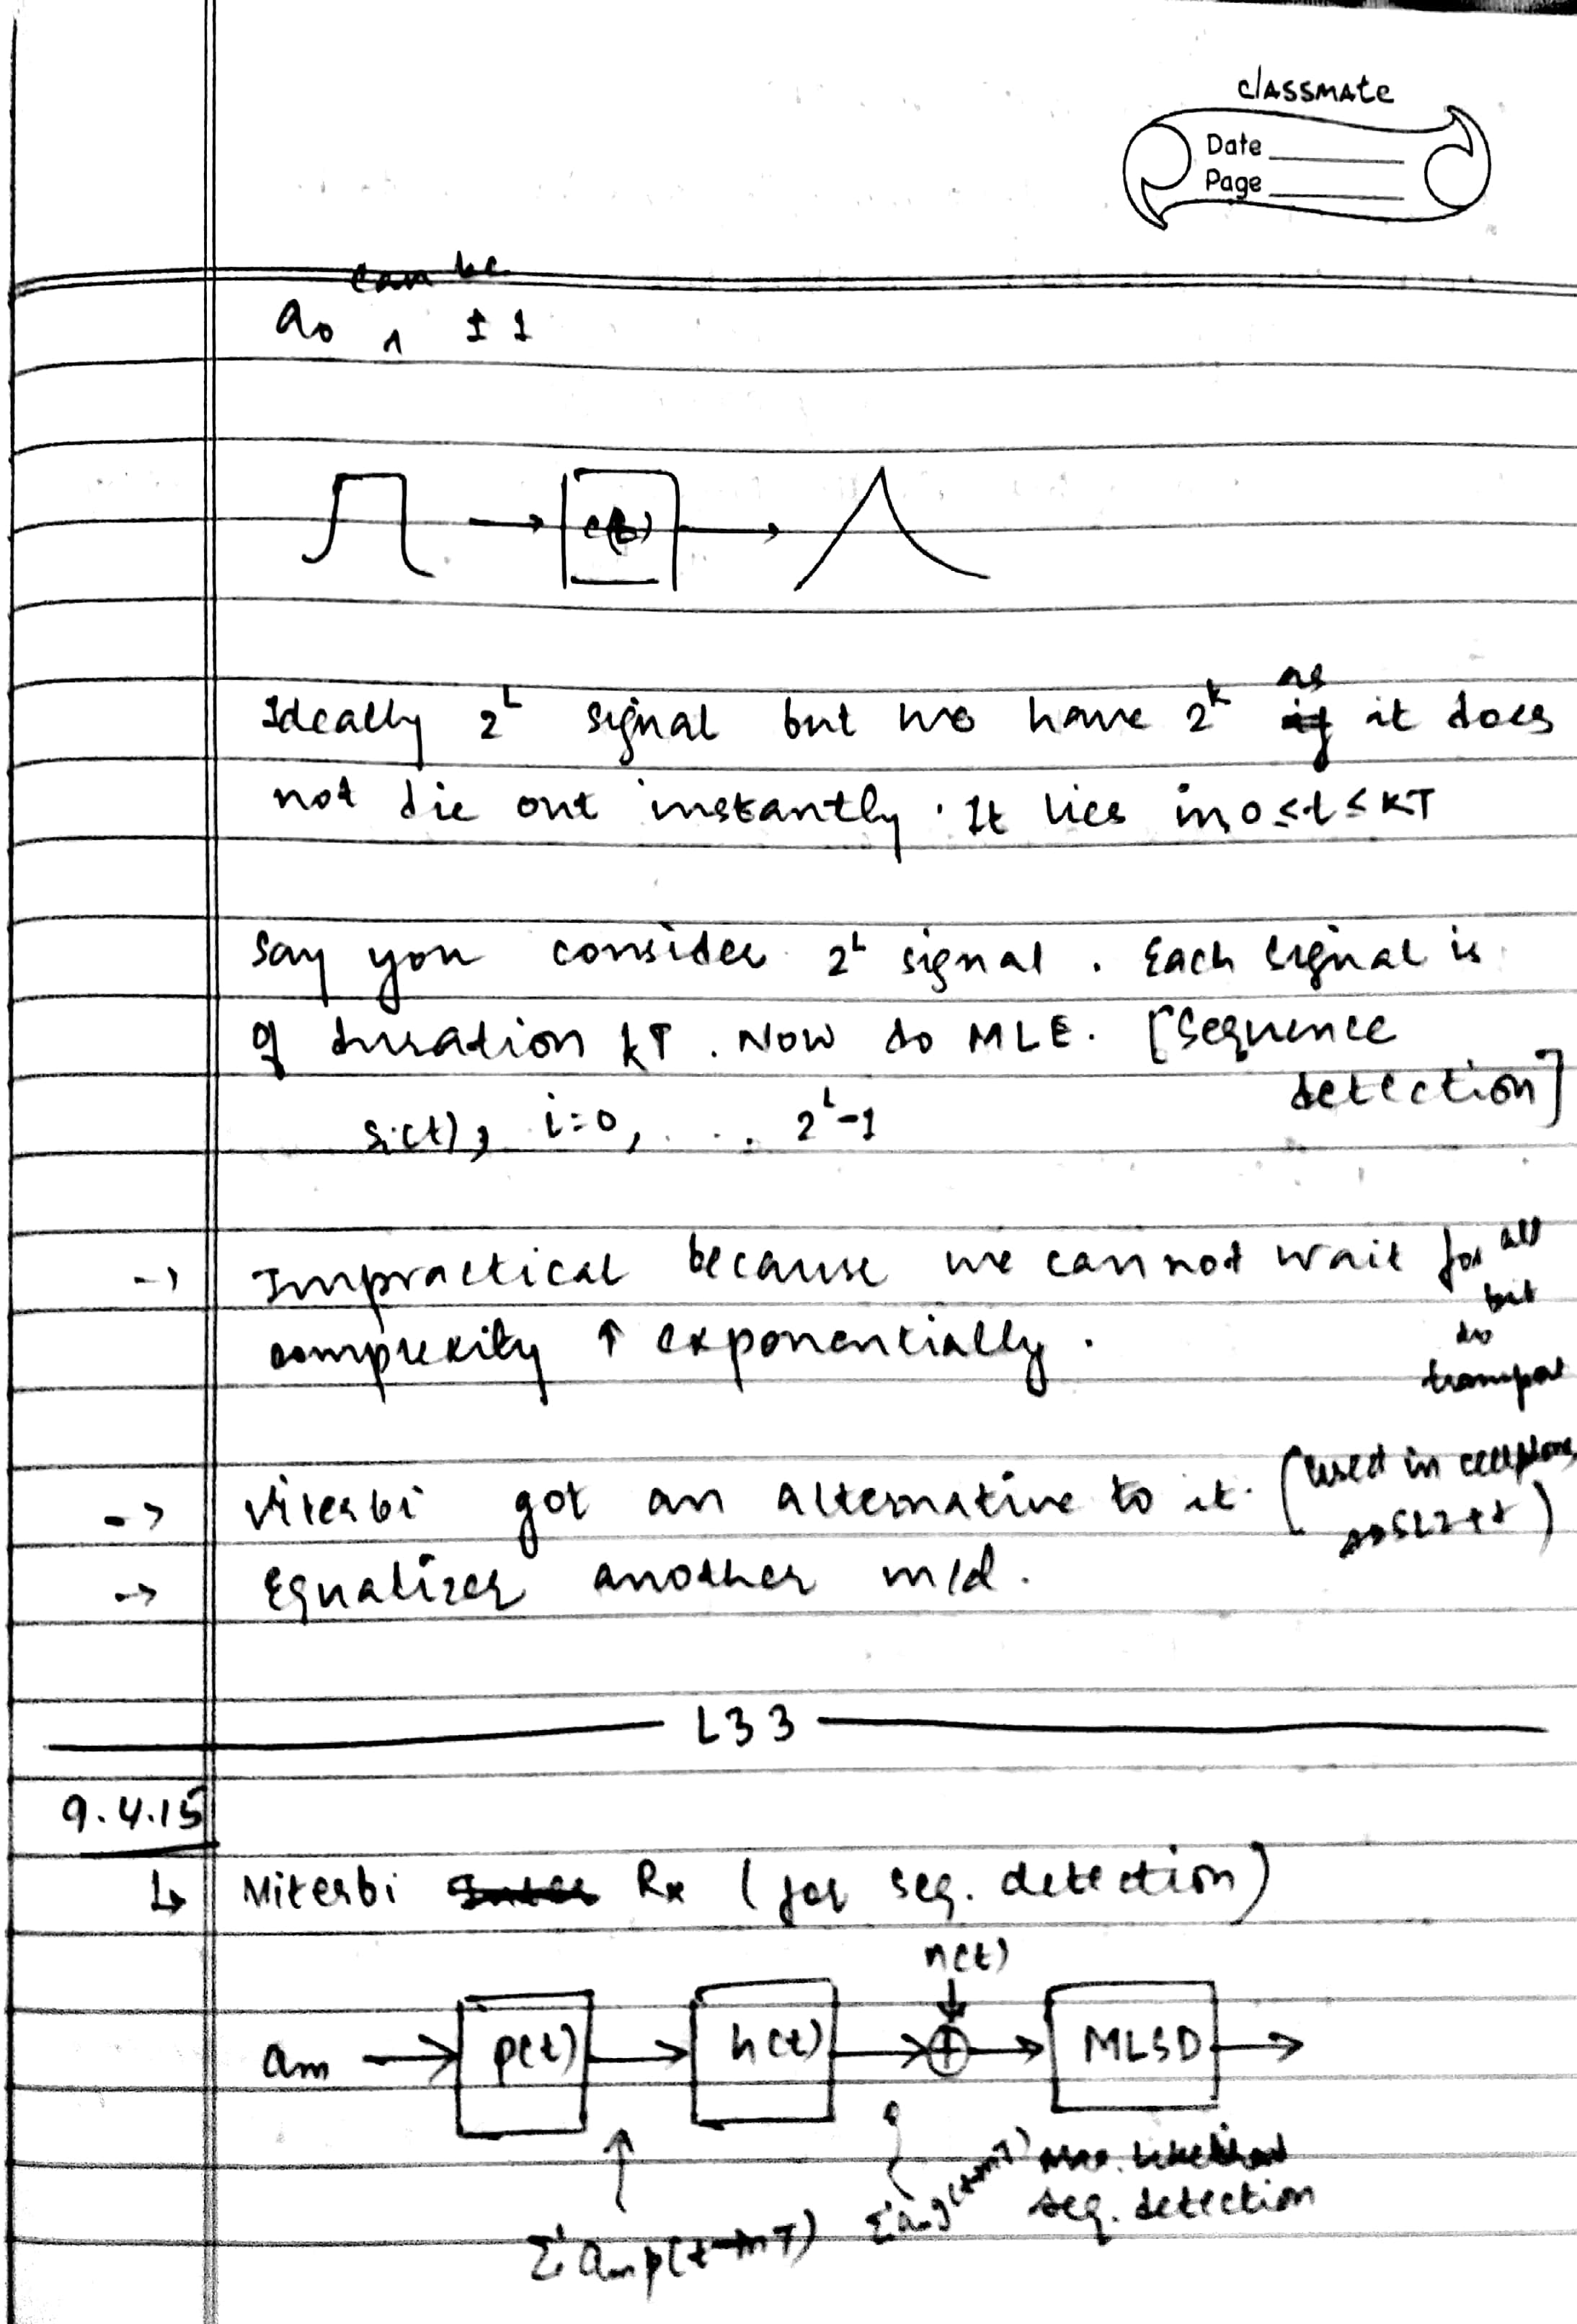 classmate
Date
Page
can be
a₀ ^ ±1
c(t)
Ideally 2^L signal but we have 2^k as it does
not die out instantly. It lies in 0≤t≤KT
Say you consider 2^L signal. Each signal is
of duration kT. Now do MLE. [Sequence
detection]
sᵢ(t), i=0, ... 2^L-1
→ Impractical because we cannot wait for all
bit
to
complexity ↑ exponentially.
→ Viterbi got an alternative to it. (used in cellphone
→ Equalizer another m/d.
L33
9.4.15
↳ Viterbi Rx (for seq. detection)
n(t)
aₘ → p(t) → h(t) → ⊕ → MLSD →
Max. likelihood
seq. detection
Σ aₘ p(t-mT)
Σ aₘ g(t-mT)